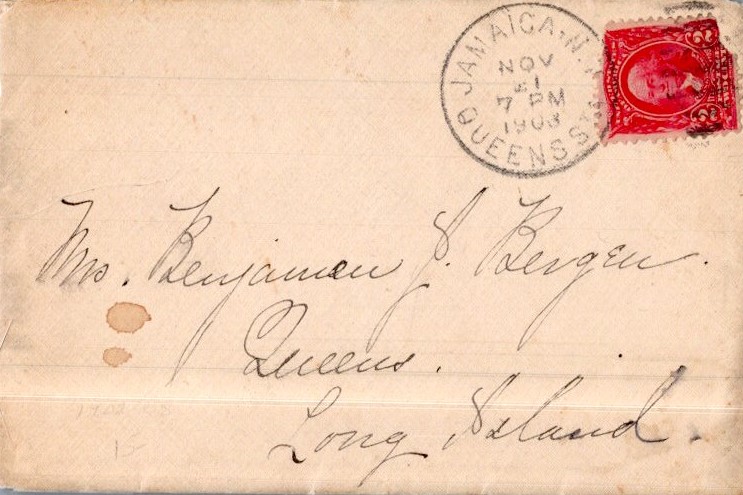 JAMAICA, N.Y.
NOV
21
7 PM
1903
QUEENS STA.
2 2
Mrs. Benjamin J. Bergen.
Queens.
Long Island.